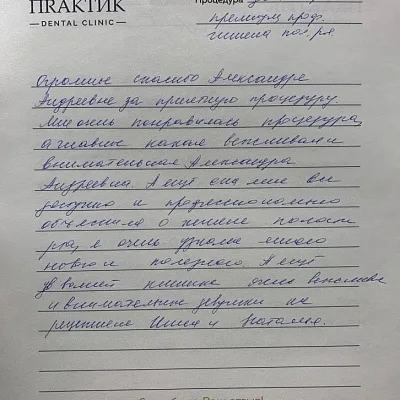 ПRАКТИК
— DENTAL CLINIC —
Процедура
премиум проф.
гигиена пол. рта
Огромное спасибо Александре
Андреевне за приятную процедуру.
Мне очень понравилась процедура,
а главное какая вежливая и
внимательная Александра
Андреевна. А ещё она мне
доступно и профессионально
объяснила о гигиене полости
рта, я очень узнала много
нового и полезного. А ещё
у вашей клинике очень вежливые
и внимательные девушки на
рецепшене Инна и Наталья.